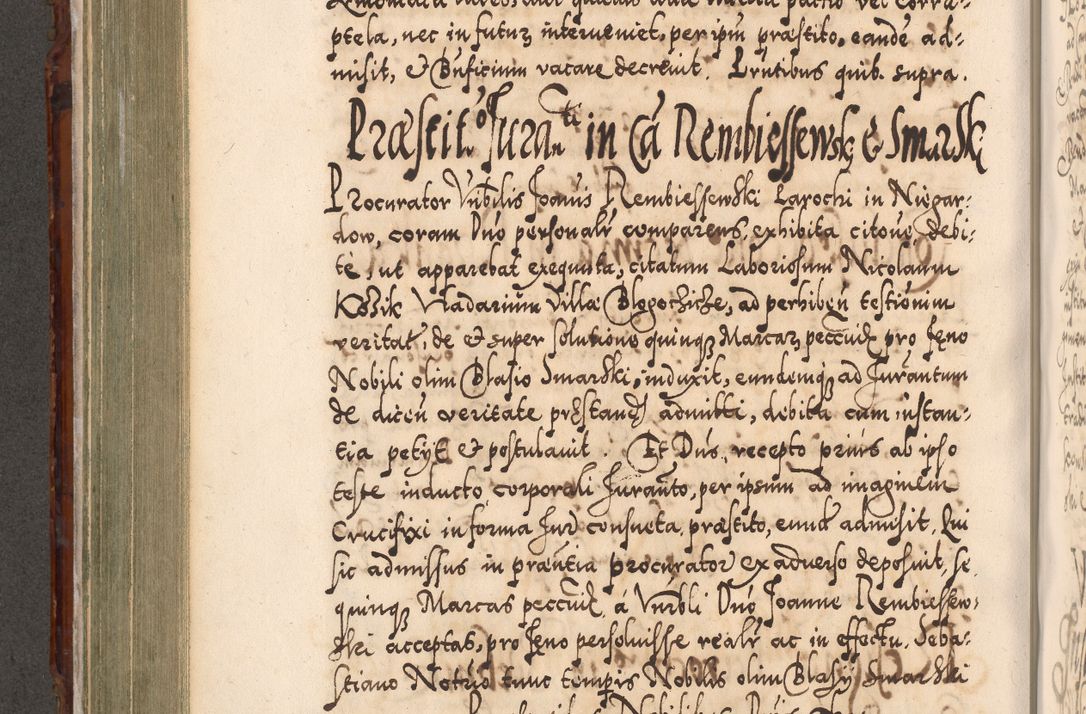 ptela, nec in futuꝝ interueniet, per ipm præstito, eandē ad-
misit, & Bnficium vacare decreuit. Prntibus quib. supra.
Præstit.º Jura.ti in Cā Rembiessewsk & Smarski
Procurator Vnbilis Joañis Rembiessewski Parochi in Niegar-
dow, coram Dno personalr comparens, exhibita citoñe debi-
tè, ut apparebat exequuta, citatum Laboriosum Nicolaum
Kozik Vladarium villæ Blogochicze, ad perhibeñ testionium
veritati, de & super solutione quinqꝫ Marcaꝝ peccuđ pro
Nobili olim Blasio Smarski, induxit, eundemqꝫ ad Jurantum
de diceñ veritate præstanđ admitti, debita cum instan-
tia petijt & postulauit. Et Dns, recepto priùs ab ipso
teste inducto, corporali Juranto, per ipsum ad imaginem
Crucifixi in forma Jurđ consueta, præstito, eund admisit, Qui
sic admissus in præntia procurator ex aduerso deposuit, se
quinqꝫ Marcas peccuđ, à Vnrbli Dno Joanne Rembiessew-
ski acceptas, pro persoluisse realr ac in effectu, Seba-
stiano Notrio tunc tempis Nobilis olim Blasÿ Smarski